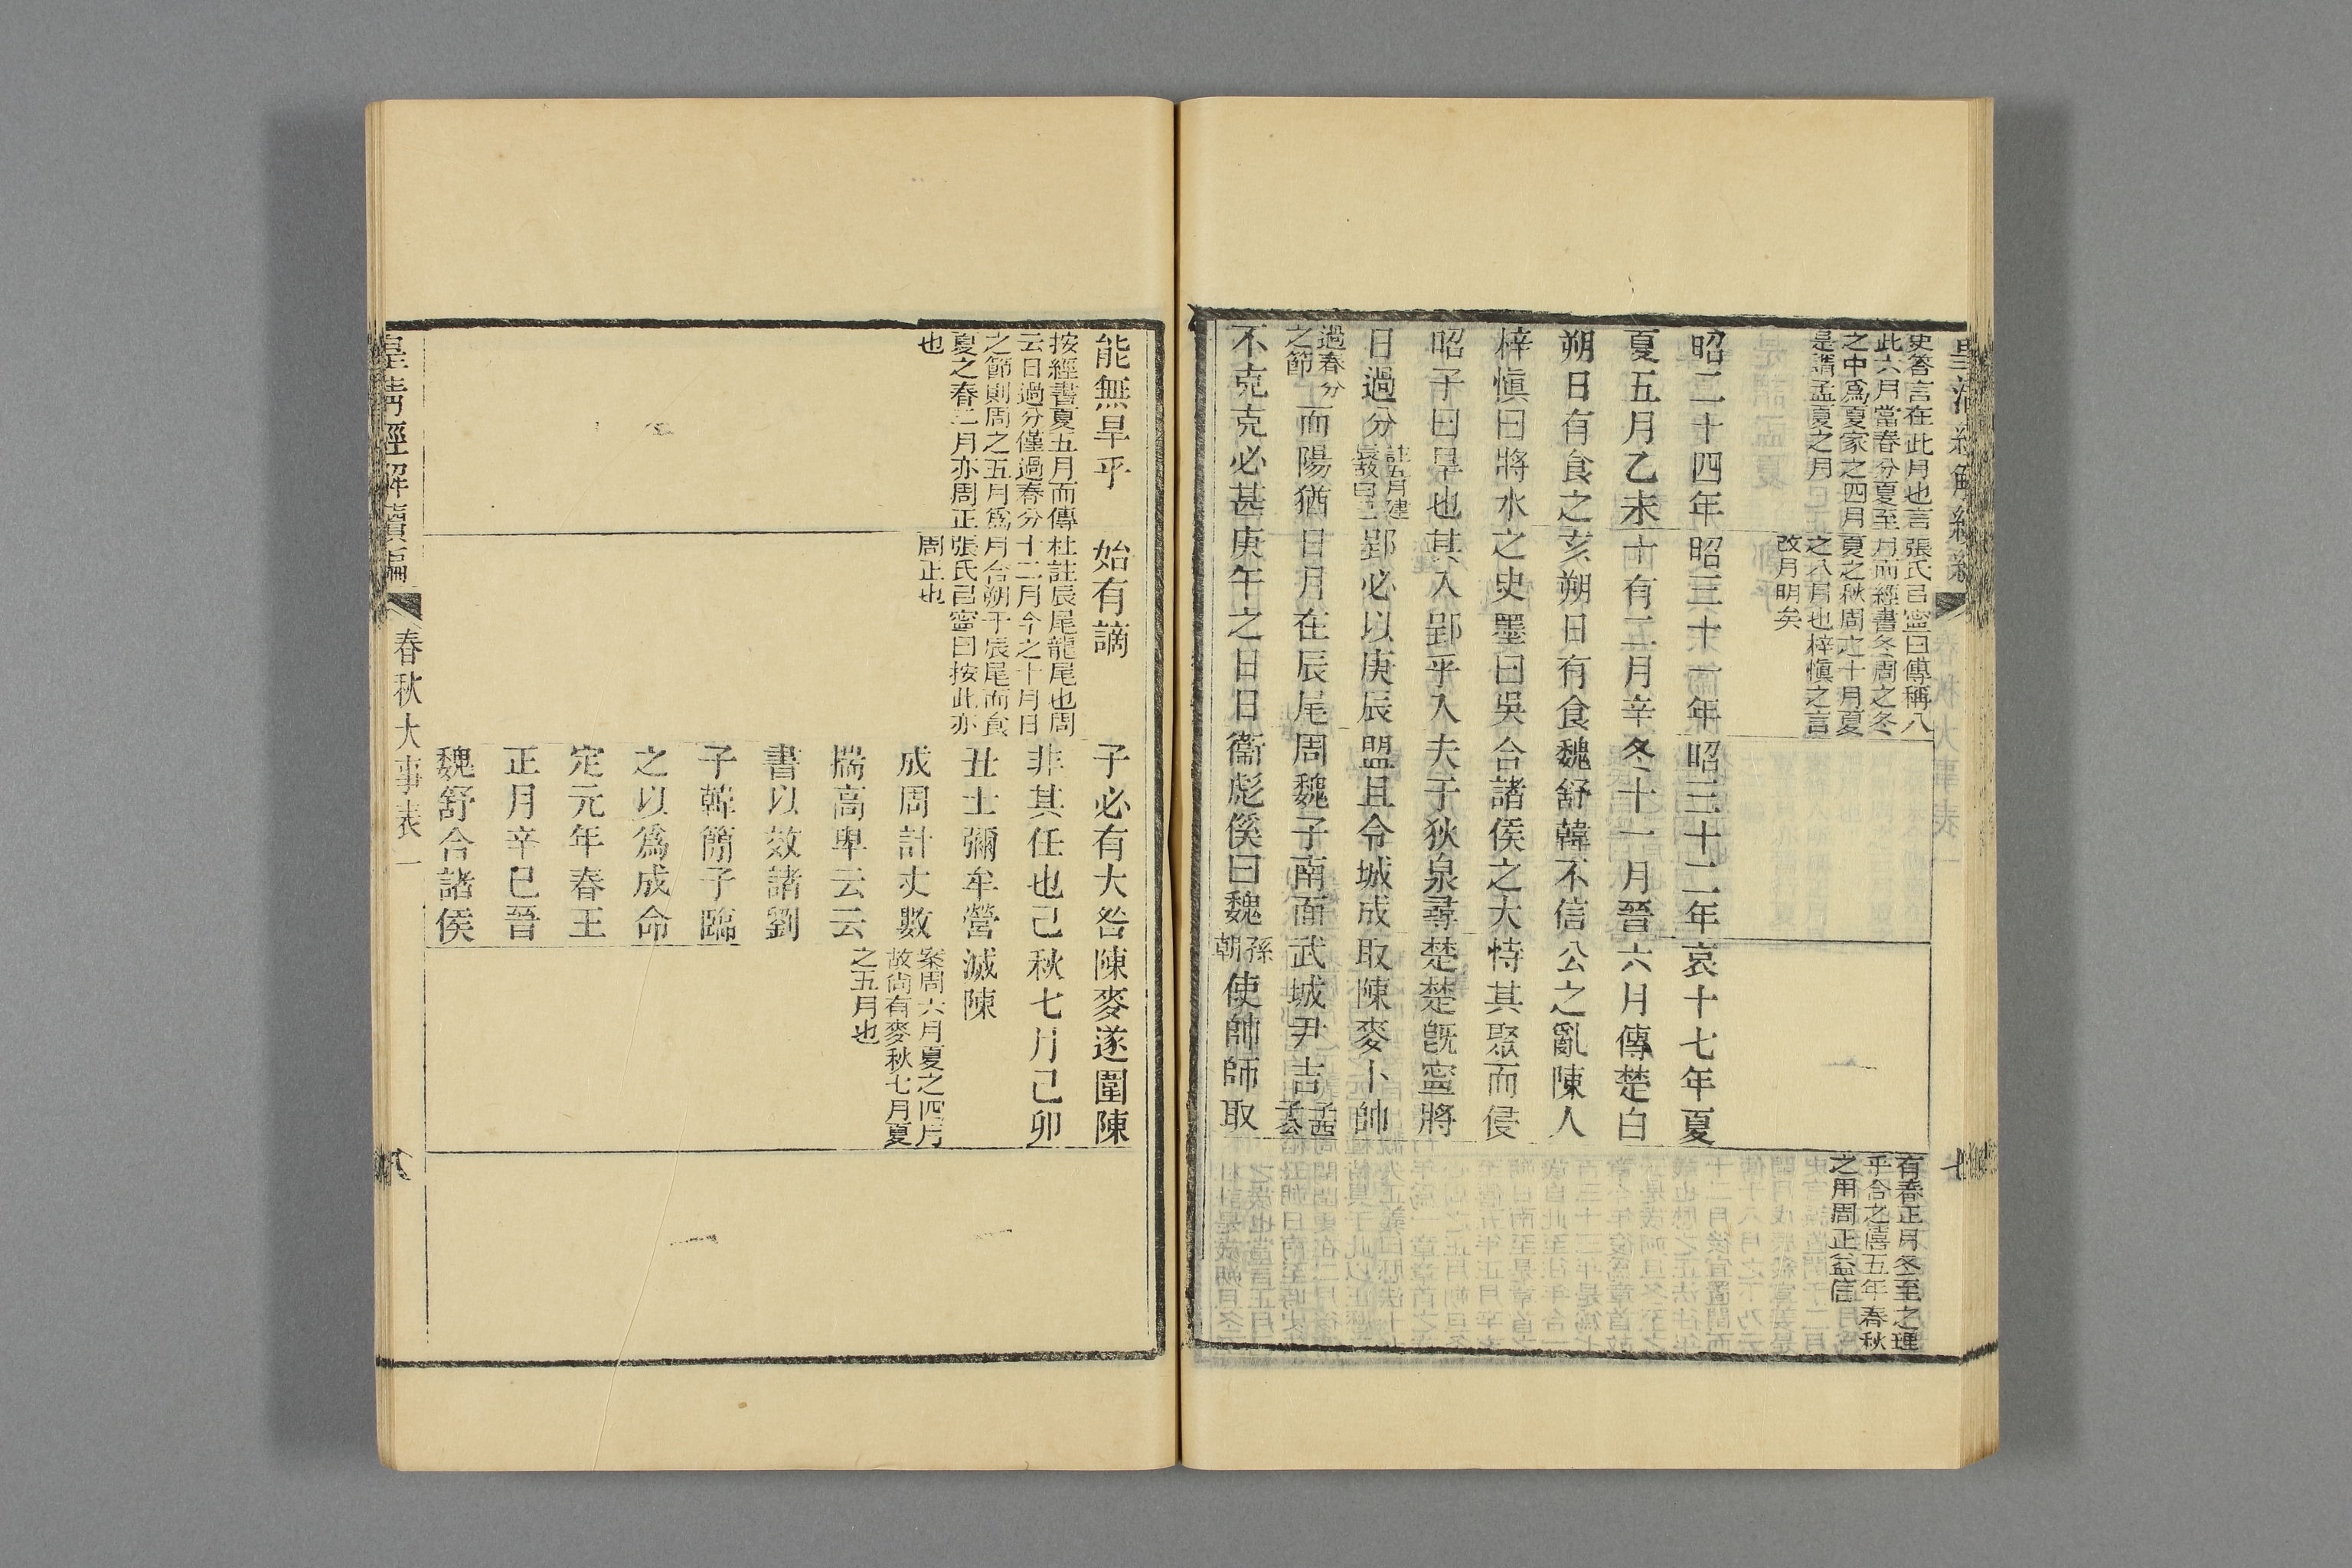 史答言在此月也言
此六月當春分夏至
之中爲夏家之四月
是謂孟夏之月
昭二十四年
夏五月乙未
朔日有食之
梓慎曰將水
昭子曰旱也
日過分註五月建
辰故曰已
過春分
之節而陽猶
不克克必甚
張氏㠯寧曰傳稱八
月而經書冬周之冬
夏之秋周之十月夏
之八月也梓慎之言
改月明矣
昭三十一年
十有二月辛
亥朔日有食
之史墨曰吳
其入郢乎入
郢必以庚辰
日月在辰尾
庚午之日日
昭三十二年
冬十一月晉
魏舒韓不信
合諸侯之大
夫于狄泉尋
盟且令城成
周魏子南面
衞彪傒曰魏
哀十七年夏
六月傳楚白
公之亂陳人
恃其聚而侵
楚楚既寧將
取陳麥卜帥
武城尹吉子西
子公
孫
朝使帥師取
有春正月冬至之理
乎合之僖五年春秋
之用周正益信
能無旱乎
按經書夏五月而傳
云日過分僅過春分
之節則周之五月爲
夏之春三月亦周正
也
始有謫
杜註辰尾龍尾也周
十二月今之十月日
月合朔于辰尾而食
張氏㠯寧曰按此亦
周正也
子必有大咎
非其任也己
丑士彌牟營
成周計丈數
揣高卑云云
書以效諸劉
子韓簡子臨
之以爲成命
定元年春王
正月辛巳晉
魏舒合諸侯
陳麥遂圍陳
秋七月己卯
滅陳
案周六月夏之四月
故尙有麥秋七月夏
之五月也
皇清經解續編
春秋大事表一
八